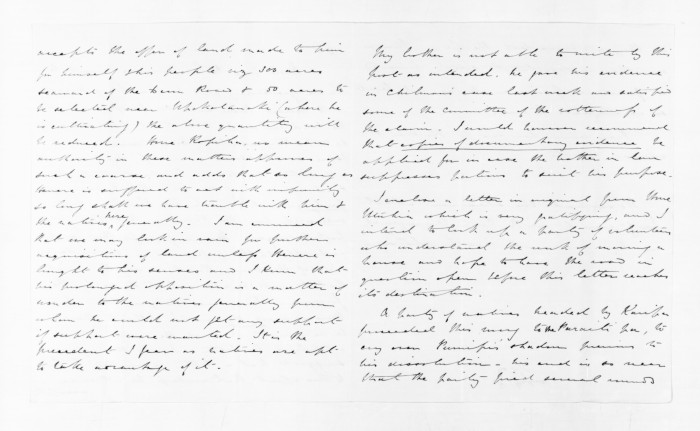 accepts the offer of land made to him
for himself & his people viz 300 acres
seaward of the Road & 50 acres to
be selected near (where he
is cultivating) the above quantity will
be reduced. no mean
authority in these matters approves of
such a course and adds that as long as
is suffered to act with impunity
so long shall we have trouble with him &
the natives here generally. I am convinced
that we may look in vain for further
acquisitions of land unless is
brought to his senses and I know that
his prolonged opposition is a matter of
wonder to the natives generally from
whom he could not get any support
if support were wanted. It is the
precedent I fear as natives are apt
to take advantage of it.
My brother is not able to write by this
post as intended. he gave his evidence
in case last week and satisfied
some of the committee of the rottenness of
the claim. I would however recommend
that copies of documentary evidence be
applied for in case the brother in law
suppresses portions to suit his purpose.
I enclose a letter in original from
which is very gratifying, and I
intend to look up a party of volunteers
who understand the work of moving a
house and hope to have the road in
question open before this letter reaches
its destination.
A party of natives headed by
proceeded this morng to the pa, to
cry over shadow previous to
his dissolution - his end is so near
that the party fired several rounds